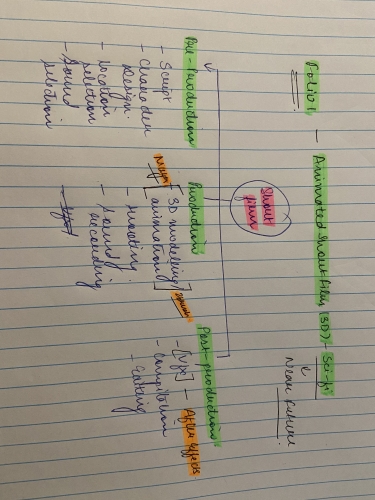 Folio 1 - Animated Short film (3D) - Sci-fi
Near future
Short
film
Pre-Production
- Script
- Character
Design
- Location
selection
- Sound
selection
Production
Maya - [3D modelling/
animation]
- shooting
- Sound
recording
Post-production
- [Vfx] - After effects
- Compition
- Editing